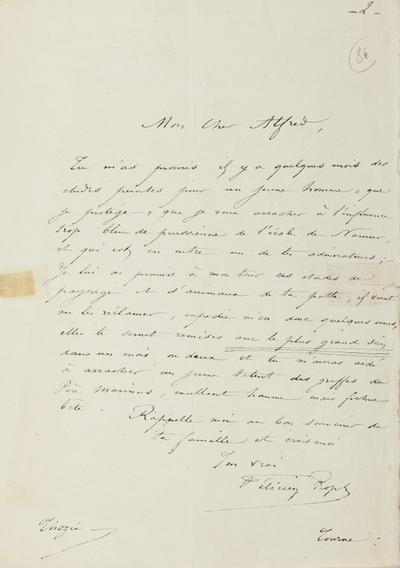 - 2 -
86
Mon cher Alfred,
Tu m'as promis il y a quelques mois des
études peintes pour un jeune homme que
je protège & que je veux arracher à l'influence
trop bleu de prussienne de l'école de Namur,
et qui est en outre un de tes admirateurs;
Je lui ai promis à montrer ces études de
paysage et d'animaux de ta patte, il vient
me les réclamer, expédie m'en donc quelques unes,
elles te seront remises avec le plus grand soin,
dans un mois ou deux et tu m'auras aidé
à arracher un jeune talent des griffes du
Père Marinus, excellent homme mais fichue
bête. Rappelle moi au bon souvenir de
ta famille et crois moi
Ton vrai
Félicien Rops
Thozée
Tourne :